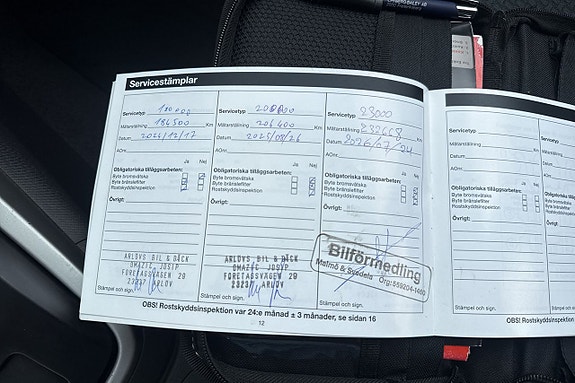 Servicestämplar
Servicetyp 180 000
Mätarställning 186500 Km
Datum 2024/12/17
AOnr.
Ja Nej
Obligatoriska tilläggsarbeten:
Byte bromsvätska
Byte bränslefilter
Rostskyddsinspektion
Övrigt:
ARLÖVS BIL & DÄCK
OMAZIC JOSIP
FÖRETAGSVÄGEN 20
23237 ARLÖV
Stämpel och sign.
Servicetyp
Mätarställning 206400 Km
Datum 2025/08/26
AOnr.
Ja Nej
Obligatoriska tilläggsarbeten:
Byte bromsvätska
Byte bränslefilter
Rostskyddsinspektion
Övrigt:
ARLÖVS BIL & DÄCK
OMAZIC JOSIP
FÖRETAGSVÄGEN 20
23237 ARLÖV
Stämpel och sign.
Servicetyp
Mätarställning Km
Datum 2026/07/24
AOnr.
Ja Nej
Obligatoriska tilläggsarbeten:
Byte bromsvätska
Byte bränslefilter
Rostskyddsinspektion
Övrigt:
Bilförmedling
Malmö & Svedala Org:
Stämpel och sign.
OBS! Rostskyddsinspektion var 24:e månad ± 3 månader, se sidan 16
12
Servicetyp
Mätarställning Km
Datum
AOnr.
Ja Nej
Obligatoriska tilläggsarbeten:
Byte bromsvätska
Byte bränslefilter
Rostskyddsinspektion
Övrigt:
Stämpel och sign.
OBS! Rostskyddsinspektion